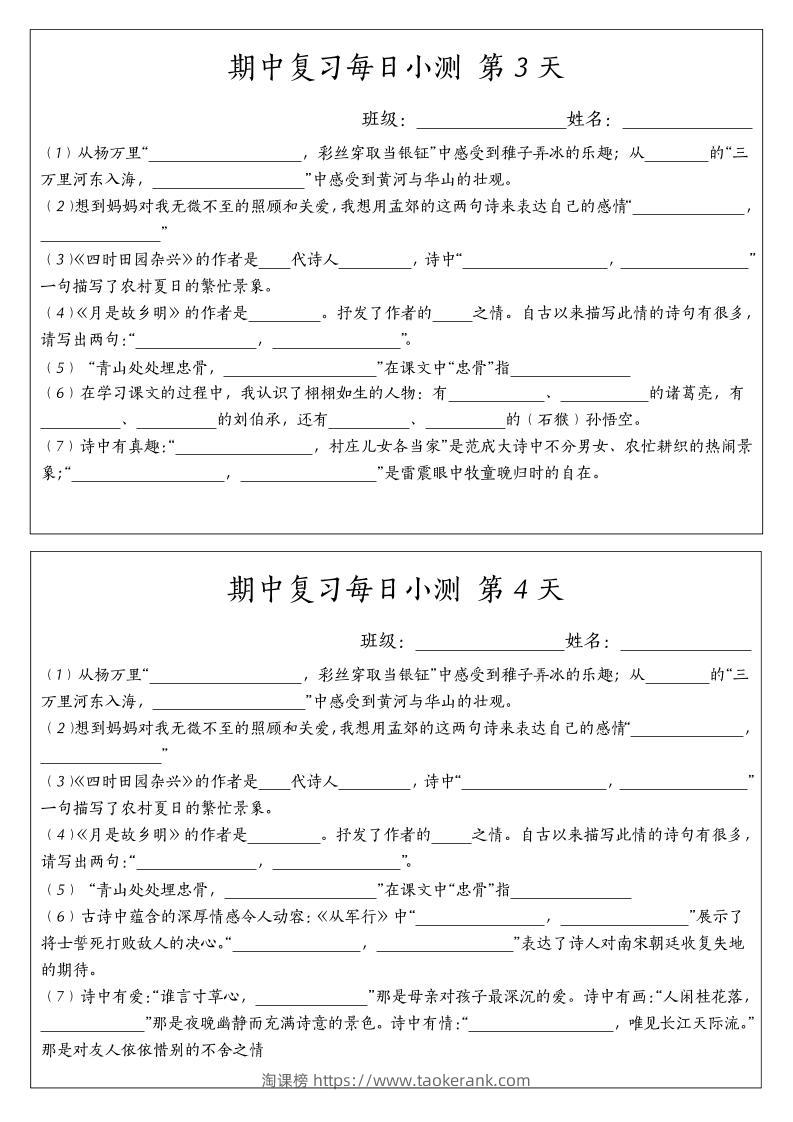 期中复习每日小测 第 3 天
班级：______________姓名：____________
（1）从杨万里“__________________，彩丝穿取当银钲”中感受到稚子弄冰的乐趣；从________的“三
万里河东入海，___________________”中感受到黄河与华山的壮观。
（2）想到妈妈对我无微不至的照顾和关爱，我想用孟郊的这两句诗来表达自己的感情“______________，
_______________”
（3）《四时田园杂兴》的作者是____代诗人_________，诗中“__________________，________________”
一句描写了农村夏日的繁忙景象。
（4）《月是故乡明》的作者是_________。抒发了作者的_____之情。自古以来描写此情的诗句有很多，
请写出两句：“_______________，________________”。
（5）“青山处处埋忠骨，___________________”在课文中“忠骨”指_______________
（6）在学习课文的过程中，我认识了栩栩如生的人物：有____________、___________的诸葛亮，有
__________、__________的刘伯承，还有__________、__________的（石猴）孙悟空。
（7）诗中有真趣：“_________________，村庄儿女各当家”是范成大诗中不分男女、农忙耕织的热闹景
象；“___________________，_________________”是雷震眼中牧童晚归时的自在。
期中复习每日小测 第 4 天
班级：______________姓名：____________
（1）从杨万里“__________________，彩丝穿取当银钲”中感受到稚子弄冰的乐趣；从________的“三
万里河东入海，___________________”中感受到黄河与华山的壮观。
（2）想到妈妈对我无微不至的照顾和关爱，我想用孟郊的这两句诗来表达自己的感情“______________，
_______________”
（3）《四时田园杂兴》的作者是____代诗人_________，诗中“__________________，________________”
一句描写了农村夏日的繁忙景象。
（4）《月是故乡明》的作者是_________。抒发了作者的_____之情。自古以来描写此情的诗句有很多，
请写出两句：“_______________，________________”。
（5）“青山处处埋忠骨，___________________”在课文中“忠骨”指_______________
（6）古诗中蕴含的深厚情感令人动容：《从军行》中“________________，________________”展示了
将士誓死打败敌人的决心。“________________，_________________”表达了诗人对南宋朝廷收复失地
的期待。
（7）诗中有爱：“谁言寸草心，______________”那是母亲对孩子最深沉的爱。诗中有画：“人闲桂花落，
_____________”那是夜晚幽静而充满诗意的景色。诗中有情：“__________________，唯见长江天际流。”
那是对友人依依惜别的不舍之情
淘课榜 https://www.taokerank.com